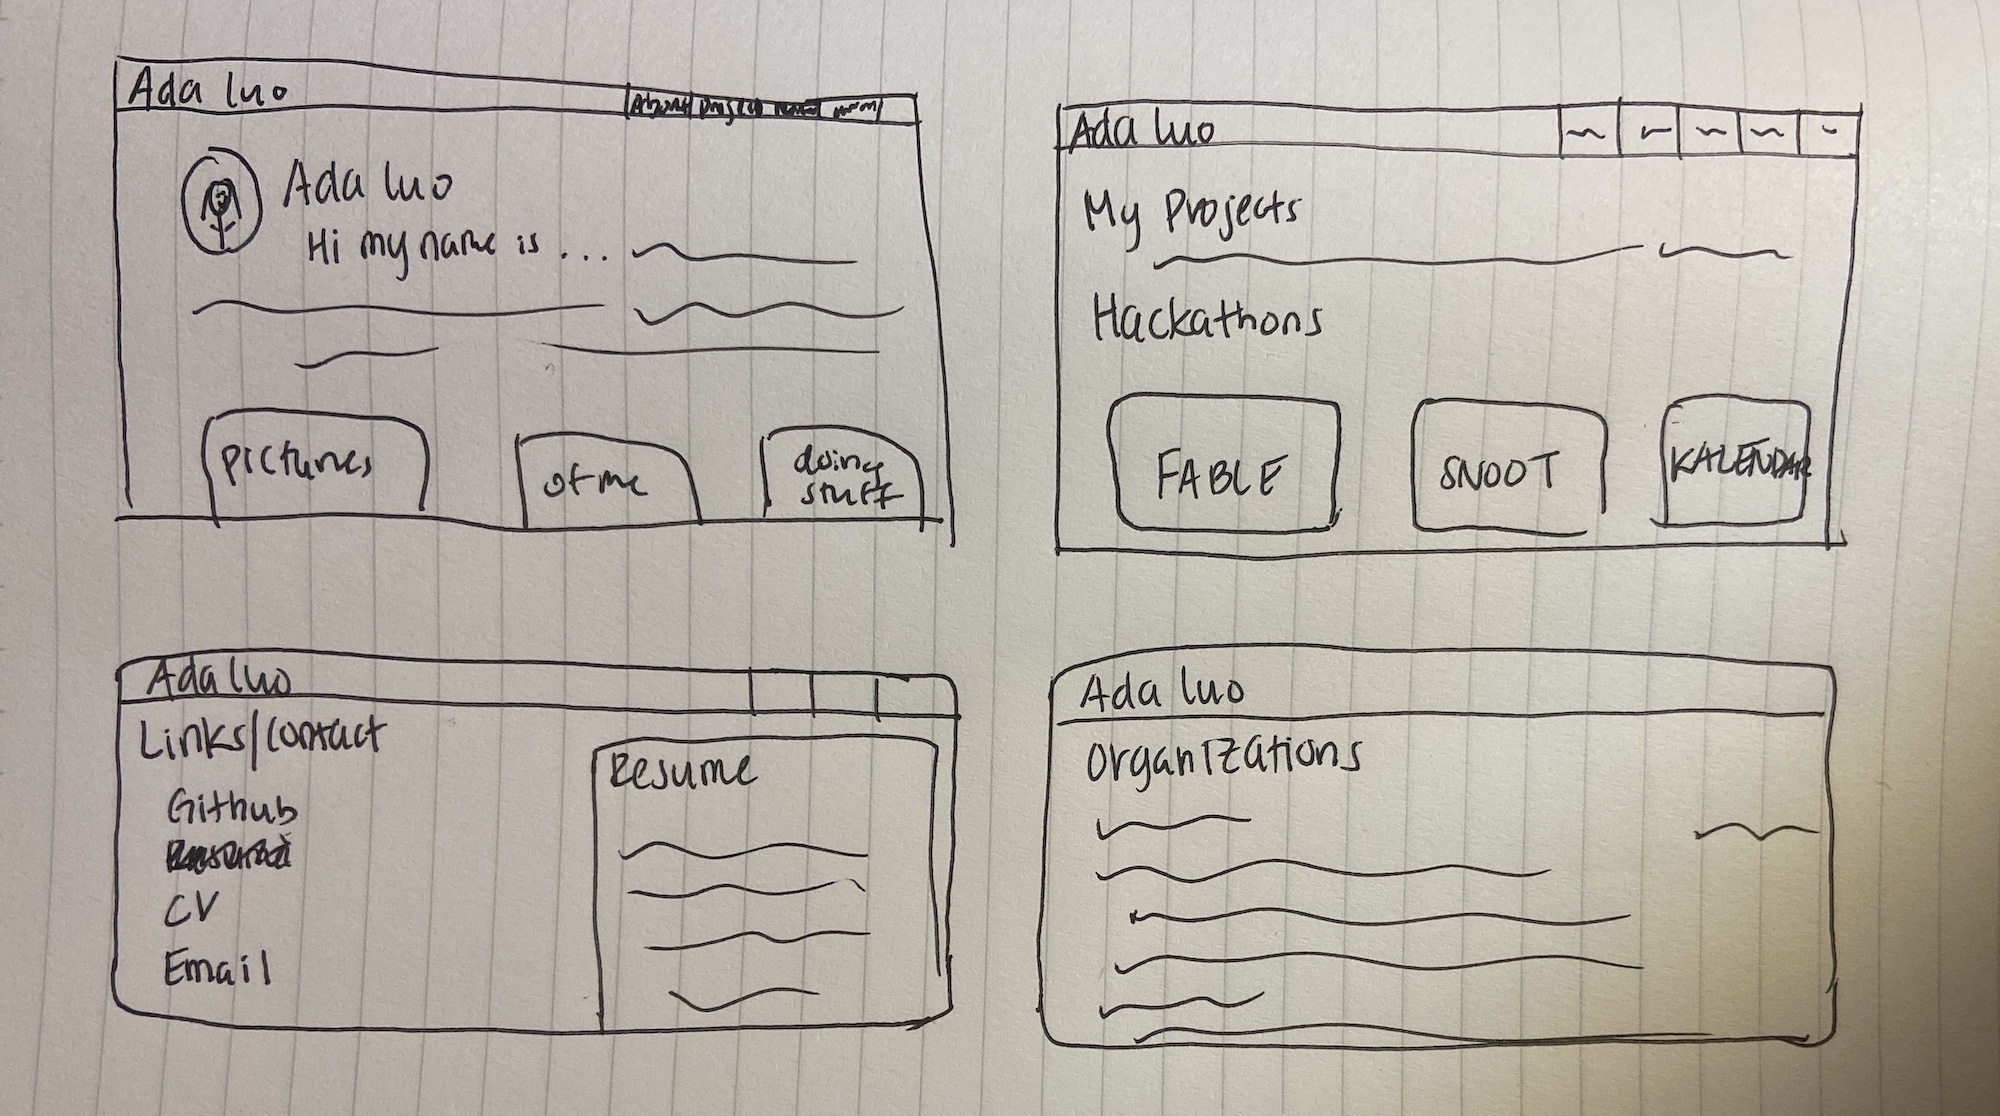 Ada Luo
About
Ada Luo
Hi my name is ...
pictures
of me
doing
stuff
Ada Luo
My Projects
Hackathons
FABLE
SNOOT
KALENDAR
Ada Luo
Links/Contact
Github
CV
Email
Resume
Ada Luo
Organizations